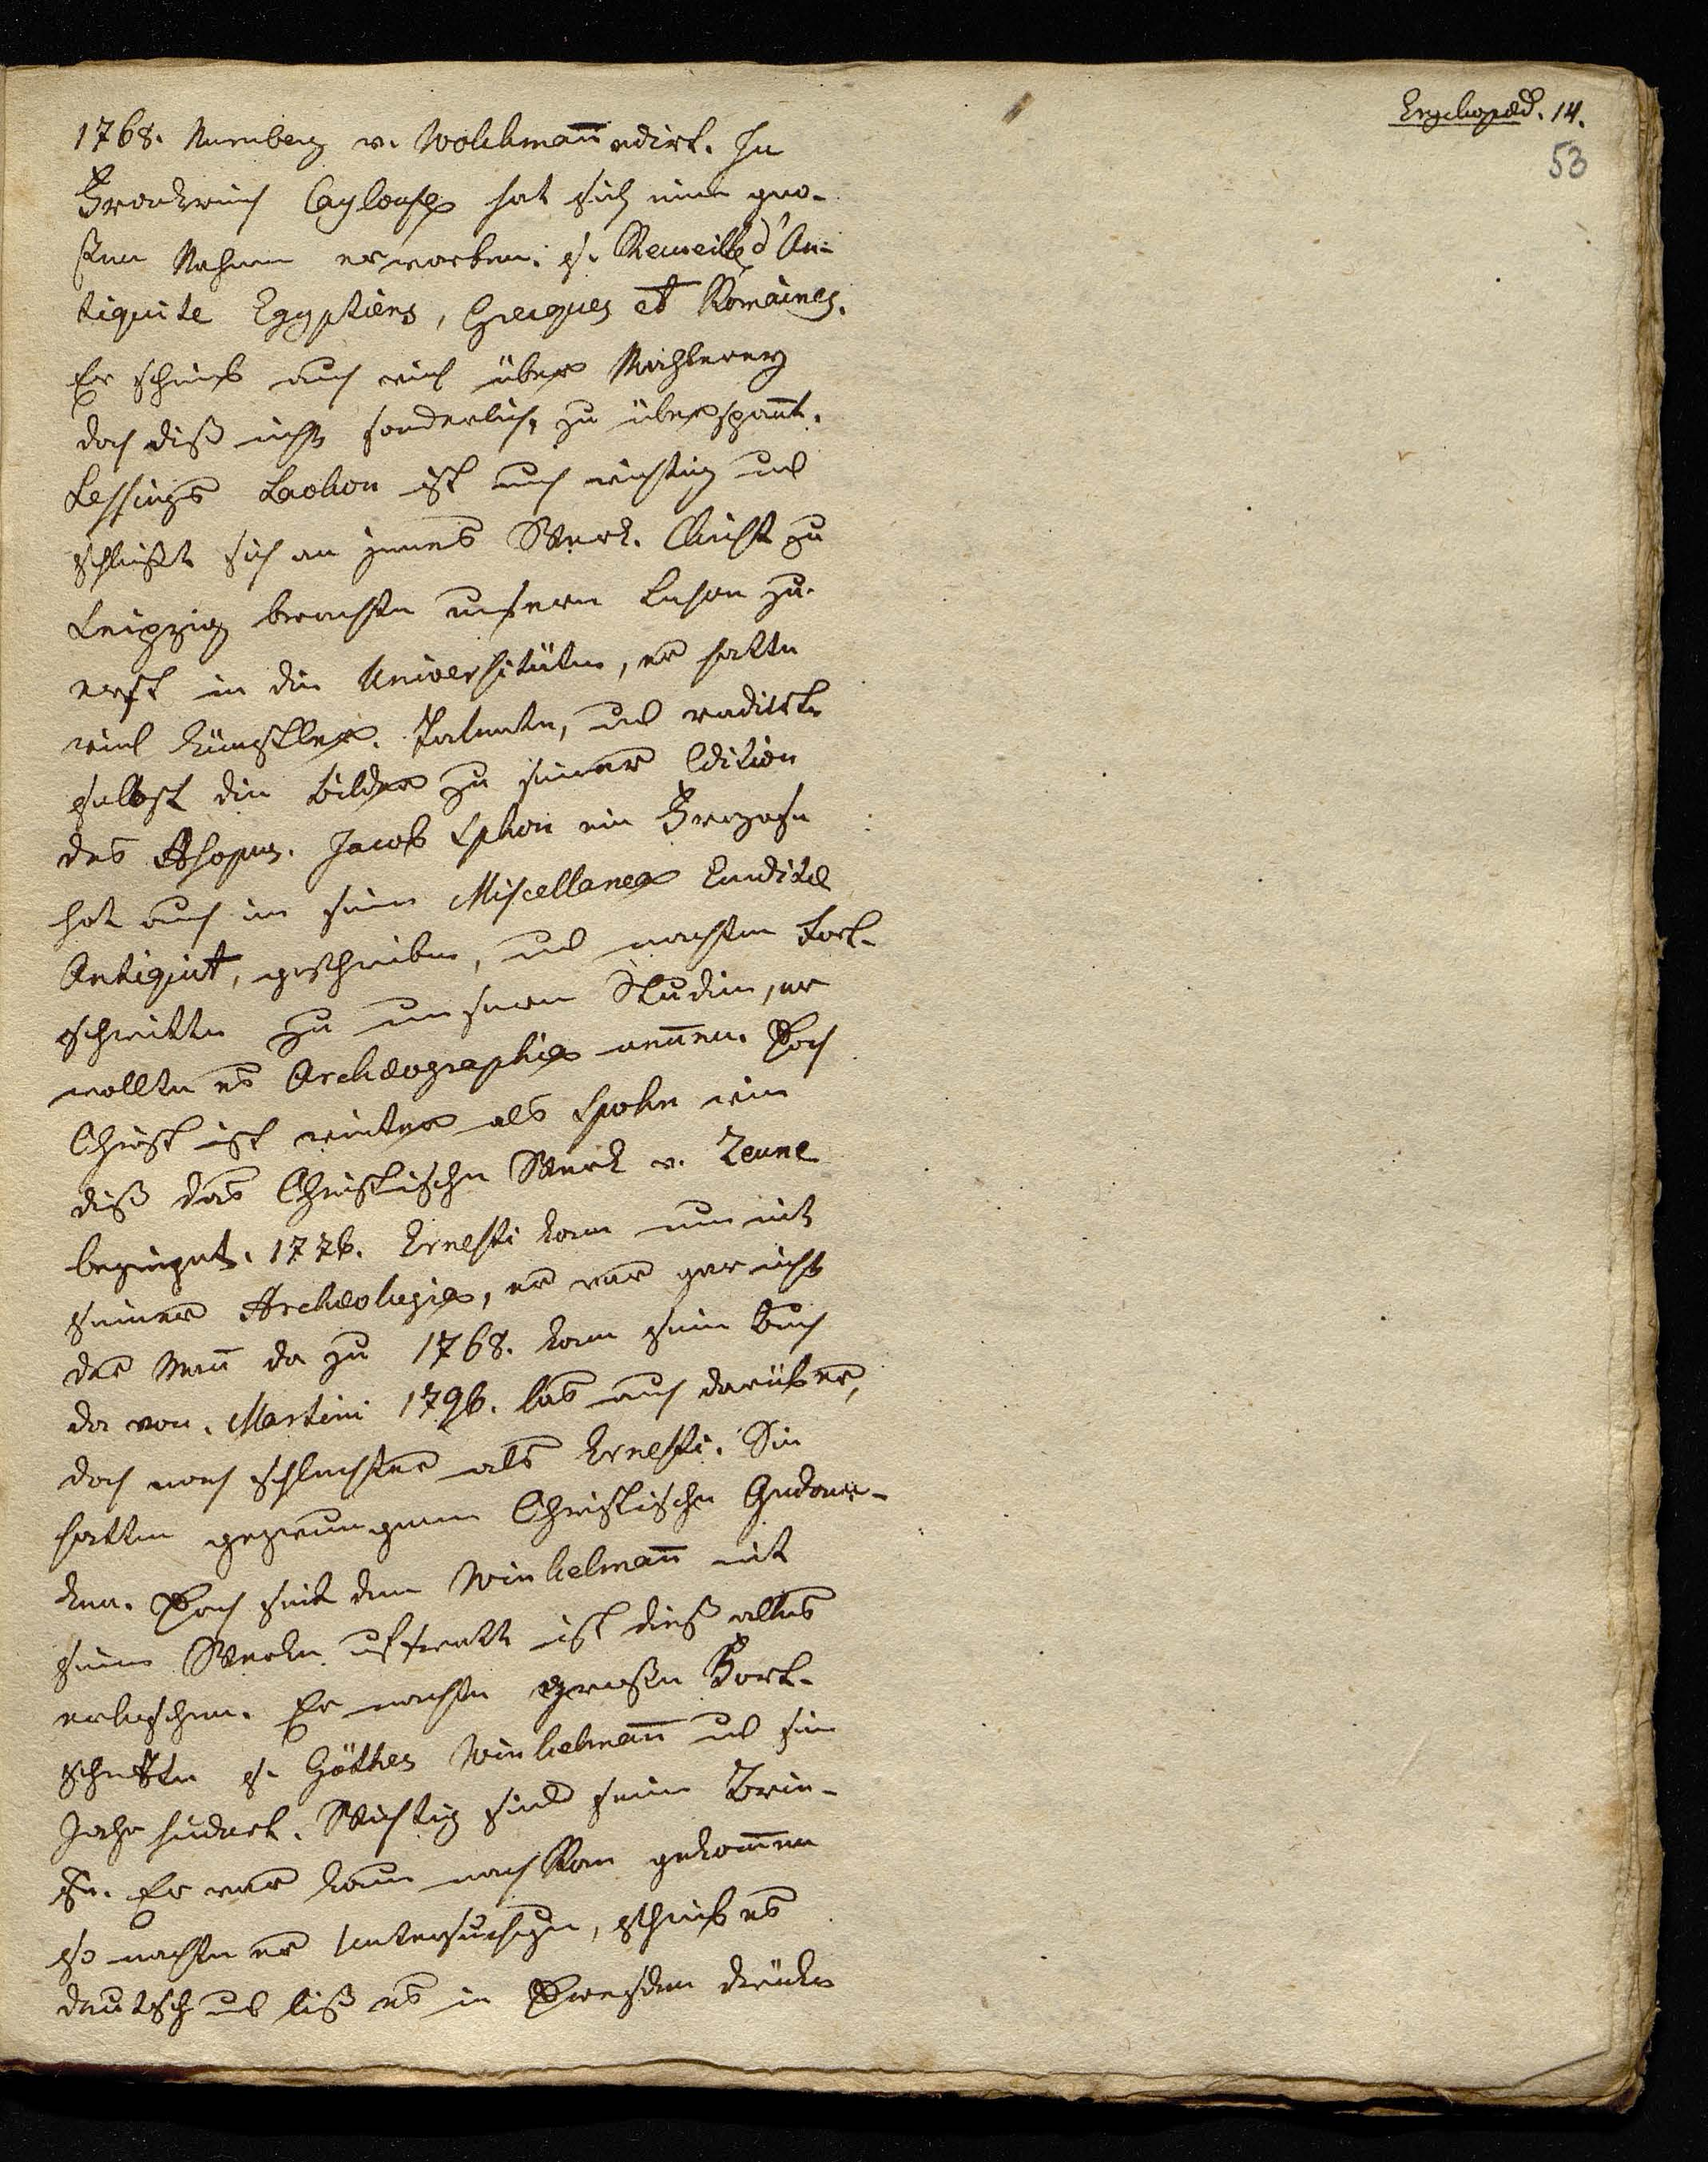 Encyclopæd. 14.
53
1768. Nurnberg v. Wolckmañ edirt. In
Frankreich Caylouse hat sich einen gro-
ßen Nahmen erworben. s. Recueille d'An-
tiquite Egyptiens, Grecques et Romaines.
Er schrieb auch viel über Mahlerey
doch diß nicht sonderlich, zu überspañt.
Lessings Laokon ist auch wichtig und
schließt sich an jenes Werk. Christ zu
Leipzig brachte unsern Lehren zu-
erst in die Universitäten, er hatte
viel Künstler. Talente, und radirte
selbst die Bilder zu seiner Edition
des Æsopus. Jacob Sphon ein Franzose
hat auch in seine Miscellanea Eruditæ
Antiquit, geschrieben, und machten Fort-
schritte zu unserm Studien, er
wollte es Archæographia neñen. Doch
Christ ist weiter als Spohn wie
diß das Christische Werk v. Zeune
bezeiget. 1776. Ernesti kam nun mit
seiner Archæologia, er war gar nicht
der Mañ da zu 1768. kam sein Buch
da von. Martini 1796. las auch darüber,
doch noch schlechter als Ernesti. Sie
hatten gezwungene Christische Gedan-
ken. Doch seit dem Winkelmañ mit
seine Werke uftratt ist dieß alles
erloschen. Er machte große Fort-
schritte s. Göthes Winkelmañ und sein
Jahrhundert. Wichtig sind seine Brie-
fe. Er war kaum nach Rom gekom̃en
so machte er Untersuchgen, schrieb es
deutsch und ließ es in Dresden drücken